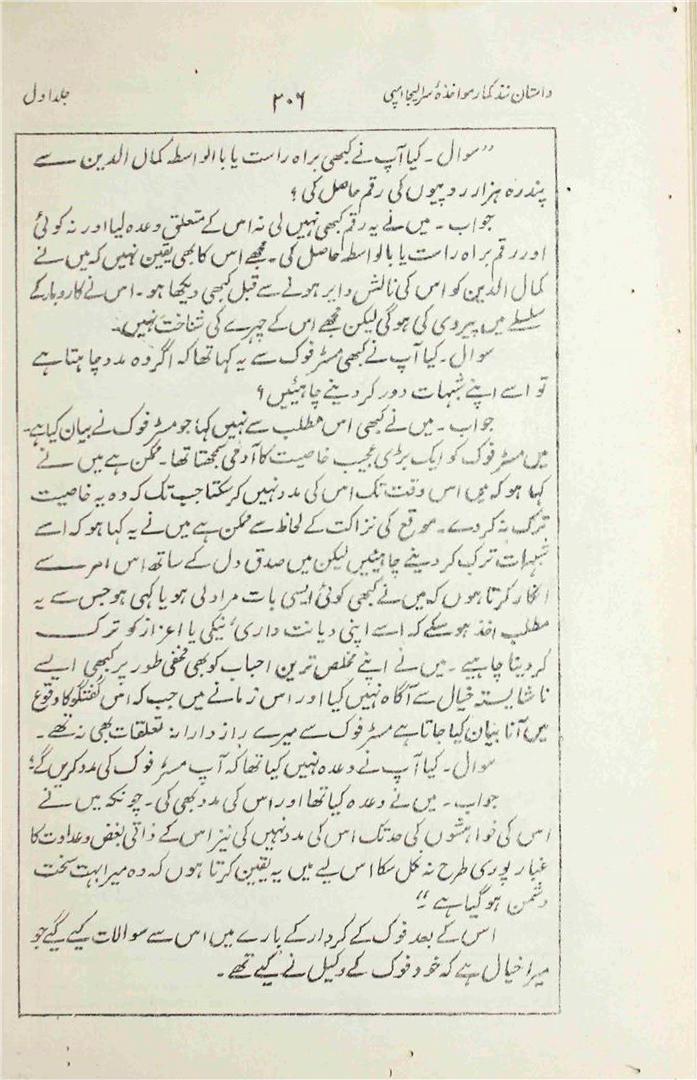 داستان نند کمار مواخذۂ سر الیجا امپی ۲۰۶ جلد اول
”سوال ۔ کیا آپ نے کبھی براہ راست یا بالواسطہ کمال الدین سے
پندرہ ہزار روپیوں کی رقم حاصل کی ؟
جواب ۔ میں نے یہ رقم کبھی نہیں لی نہ اس کے متعلق وعدہ لیا اور نہ کوئی
اور رقم براہ راست یا بالواسطہ حاصل کی ۔ مجھے اس کا بھی یقین نہیں کہ میں نے
کمال الدین کو اس کی نالش دایر ہونے سے قبل کبھی دیکھا ہو ۔ اس نے کاروبار کے
سلسلے میں پیروی کی ہوگی لیکن مجھے اس کے چہرے کی شناخت نہیں۔
سوال ۔ کیا آپ نے کبھی مسٹر فوک سے یہ کہا تھا کہ اگر وہ مدد چاہتا ہے
تو اسے اپنے شبہات دور کر دینے چاہئیں ؟
جواب ۔ میں نے کبھی اس مطلب سے نہیں کہا جو مسٹر فوک نے بیان کیا ہے۔
میں مسٹر فوک کو ایک بڑی عجیب خاصیت کا آدمی سمجھتا تھا ۔ ممکن ہے میں نے
کہا ہو کہ میں اس وقت تک اس کی مدد نہیں کر سکتا جب تک کہ وہ یہ خاصیت
ترک نہ کر دے ۔ موقع کی نزاکت کے لحاظ سے ممکن ہے میں نے یہ کہا ہو کہ اسے
شبہات ترک کر دینے چاہئیں لیکن میں صدق دل کے ساتھ اس امر سے
انکار کرتا ہوں کہ میں نے کبھی کوئی ایسی بات مراد لی ہو یا کہی ہو جس سے یہ
مطلب اخذ ہو سکے کہ اسے اپنی دیانت داری ، نیکی یا اعزاز کو ترک
کر دینا چاہیے ۔ میں نے اپنے مخلص ترین احباب کو بھی مخفی طور پر کبھی ایسے
ناشایستہ خیال سے آگاہ نہیں کیا اور اس زمانے میں جب کہ اس گفتگو کا وقوع
میں آنا بیان کیا جاتا ہے مسٹر فوک سے میرے رازدارانہ تعلقات بھی نہ تھے ۔
سوال ۔ کیا آپ نے وعدہ نہیں کیا تھا کہ آپ مسٹر فوک کی مدد کریں گے؟
جواب ۔ میں نے وعدہ کیا تھا اور اس کی مدد بھی کی ۔ چونکہ میں نے
اس کی خواہشوں کی حد تک اس کی مدد نہیں کی نیز اس کے ذاتی بغض و عداوت کا
غبار پوری طرح نہ نکل سکا اس لیے میں یہ یقین کرتا ہوں کہ وہ میرا بہت سخت
دشمن ہو گیا ہے ۔“
اس کے بعد فوک کے کردار کے بارے میں اس سے سوالات کیے گیے جو
میرا خیال ہے کہ خود فوک کے وکیل نے کیے تھے ۔